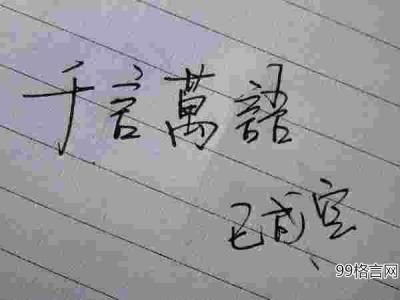 千言萬語
已成空
99格言网